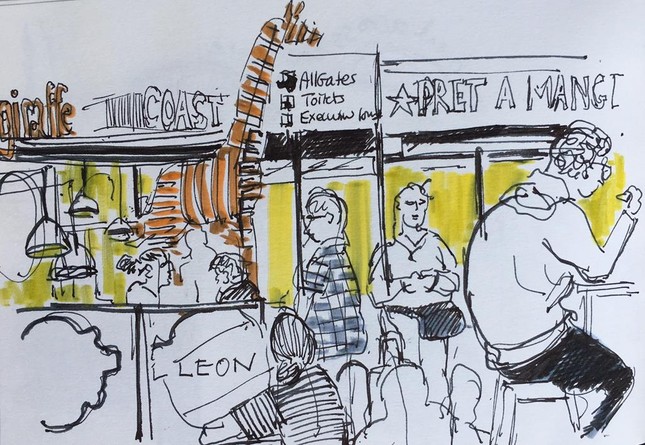 giraffe
COAST
All Gates
Toilets
Executive
PRET A MANGE
LEON